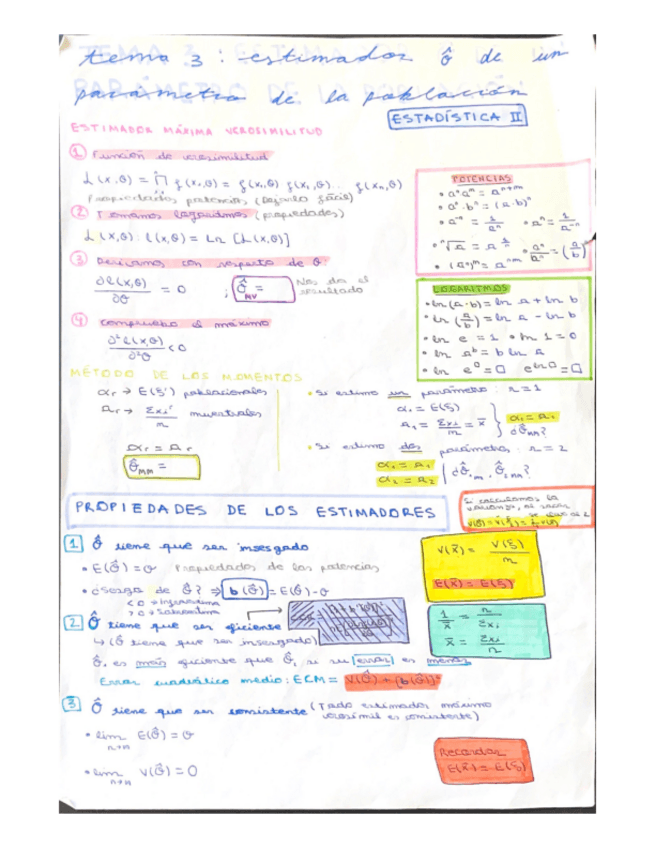 tema 3 : estimador ô de un
parámetro de la población
ESTADÍSTICA II
ESTIMADOR MÁXIMA VEROSIMILITUD
① Función de verosimilitud
L(x,θ) = ∏ f(xi,θ) = f(x1,θ) f(x2,θ)... f(xn,θ)
Propiedades potencias (Dejarlo fácil)
② Tomamos logaritmos (propiedades)
L(x,θ): l(x,θ) = Ln [L(x,θ)]
③ Derivamos con respecto de θ:
∂l(x,θ)/∂θ = 0 ; θ̂MV = Nos da el resultado
④ Compruebo el máximo
∂²l(x,θ)/∂²θ < 0
POTENCIAS
• aⁿaᵐ = aⁿ⁺ᵐ
• aⁿ·bⁿ = (a·b)ⁿ
• a⁻ⁿ = 1/aⁿ • aⁿ = 1/a⁻ⁿ
• aⁿ/bⁿ = (a/b)ⁿ
• (aⁿ)ᵐ = aⁿᵐ
LOGARITMOS
• ln(a·b) = ln a + ln b
• ln(a/b) = ln a - ln b
• ln e = 1 • ln 1 = 0
• ln aᵇ = b ln a
• ln e^□ = □ e^ln□ = □
MÉTODO DE LOS MOMENTOS
αr → E(ξʳ) poblacionales
ar → Σxiʳ/n muestrales
αr = ar
θ̂MM =
• Si estimo un parámetro : r = 1
α1 = E(ξ)
a1 = Σxi/n = x̄
α1 = a1
¿θ̂MM?
• Si estimo dos parámetros : r = 2
α1 = a1
α2 = a2
PROPIEDADES DE LOS ESTIMADORES
Si calculamos la
varianza, al sacar
1 θ̂ tiene que ser insesgado
• E(θ̂) = θ Propiedades de las potencias
• ¿Sesgo de θ̂? ⇒ b(θ̂) = E(θ̂) - θ
V(x̄) = V(ξ)/n
E(x̄) = E(ξ)
2 θ̂ tiene que ser eficiente
↳ (θ̂ tiene que ser insesgado)
θ̂1 es más eficiente que θ̂2 si su error es menor
Error cuadrático medio: ECM = V(θ̂) + [b(θ̂)]²
1/x̄ = n/Σxi
x̄ = Σxi/n
3 θ̂ tiene que ser consistente (Todo estimador máximo
verosímil es consistente)
• lim E(θ̂) = θ
n→∞
• lim V(θ̂) = 0
n→∞
Recordar
E(x̄) = E(ξ)